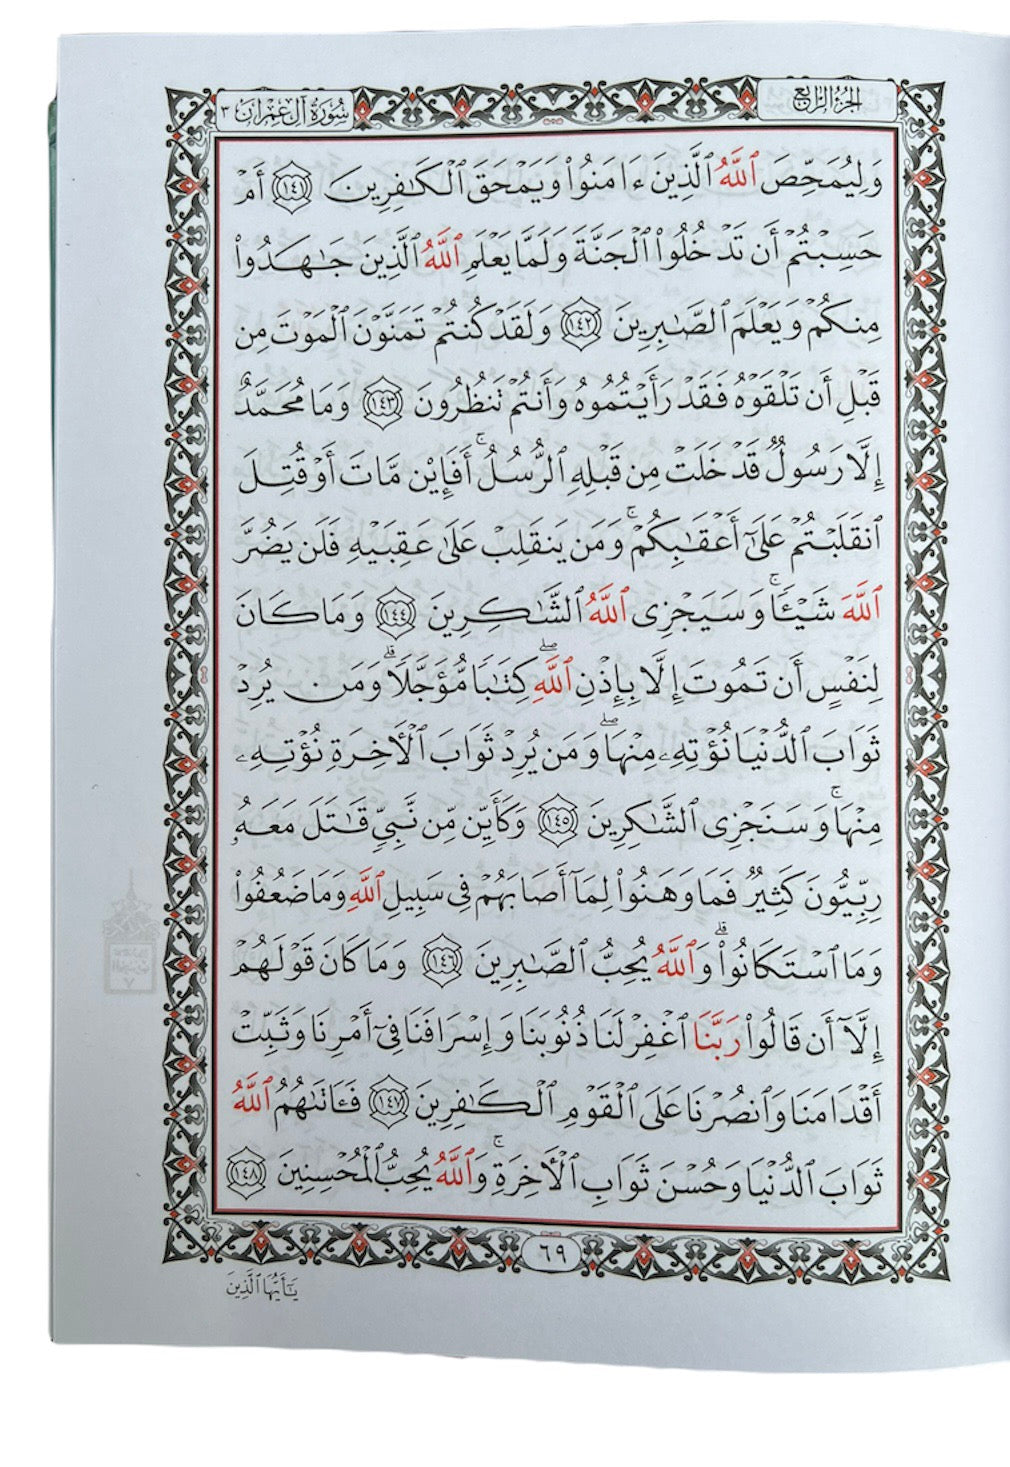 الجزء الرابع
سورة آل عمران ٣
وَلِيُمَحِّصَ ٱللَّهُ ٱلَّذِينَ ءَامَنُوا۟ وَيَمْحَقَ ٱلْكَـٰفِرِينَ ١٤١ أَمْ
حَسِبْتُمْ أَن تَدْخُلُوا۟ ٱلْجَنَّةَ وَلَمَّا يَعْلَمِ ٱللَّهُ ٱلَّذِينَ جَـٰهَدُوا۟
مِنكُمْ وَيَعْلَمَ ٱلصَّـٰبِرِينَ ١٤٢ وَلَقَدْ كُنتُمْ تَمَنَّوْنَ ٱلْمَوْتَ مِن
قَبْلِ أَن تَلْقَوْهُ فَقَدْ رَأَيْتُمُوهُ وَأَنتُمْ تَنظُرُونَ ١٤٣ وَمَا مُحَمَّدٌ
إِلَّا رَسُولٌ قَدْ خَلَتْ مِن قَبْلِهِ ٱلرُّسُلُ ۚ أَفَإِي۟ن مَّاتَ أَوْ قُتِلَ
ٱنقَلَبْتُمْ عَلَىٰٓ أَعْقَـٰبِكُمْ ۚ وَمَن يَنقَلِبْ عَلَىٰ عَقِبَيْهِ فَلَن يَضُرَّ
ٱللَّهَ شَيْـًٔا ۚ وَسَيَجْزِى ٱللَّهُ ٱلشَّـٰكِرِينَ ١٤٤ وَمَا كَانَ
لِنَفْسٍ أَن تَمُوتَ إِلَّا بِإِذْنِ ٱللَّهِ ۖ كِتَـٰبًا مُّؤَجَّلًا ۗ وَمَن يُرِدْ
ثَوَابَ ٱلدُّنْيَا نُؤْتِهِۦ مِنْهَا ۖ وَمَن يُرِدْ ثَوَابَ ٱلْأَخِرَةِ نُؤْتِهِۦ
مِنْهَا ۚ وَسَنَجْزِى ٱلشَّـٰكِرِينَ ١٤٥ وَكَأَيِّن مِّن نَّبِىٍّ قَـٰتَلَ مَعَهُۥ
رِبِّيُّونَ كَثِيرٌ فَمَا وَهَنُوا۟ لِمَآ أَصَابَهُمْ فِى سَبِيلِ ٱللَّهِ وَمَا ضَعُفُوا۟
وَمَا ٱسْتَكَانُوا۟ ۗ وَٱللَّهُ يُحِبُّ ٱلصَّـٰبِرِينَ ١٤٦ وَمَا كَانَ قَوْلَهُمْ
إِلَّآ أَن قَالُوا۟ رَبَّنَا ٱغْفِرْ لَنَا ذُنُوبَنَا وَإِسْرَافَنَا فِىٓ أَمْرِنَا وَثَبِّتْ
أَقْدَامَنَا وَٱنصُرْنَا عَلَى ٱلْقَوْمِ ٱلْكَـٰفِرِينَ ١٤٧ فَـَٔاتَىٰهُمُ ٱللَّهُ
ثَوَابَ ٱلدُّنْيَا وَحُسْنَ ثَوَابِ ٱلْأَخِرَةِ ۗ وَٱللَّهُ يُحِبُّ ٱلْمُحْسِنِينَ ١٤٨
٦٩
يَـٰٓأَيُّهَا ٱلَّذِينَ